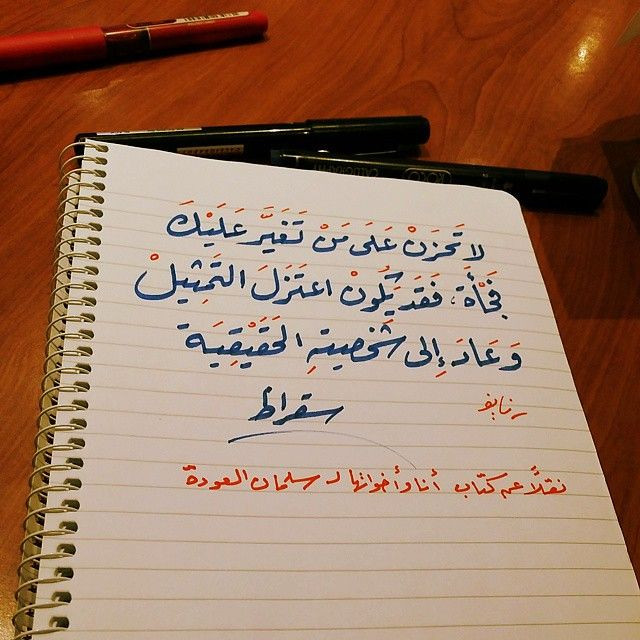 لا تَحزَنْ عَلَى مَنْ تَغَيَّرَ عَلَيْكَ
فَجْأَة، فَقَد يَكُونْ اعتَزَلَ التَمثِيلْ
وَعَادَ إِلى شَخصيتهِ الحَقيْقِيَة
سقراط
نقلاً عن كتاب أنا وأخواتها لـ سلمان العودة